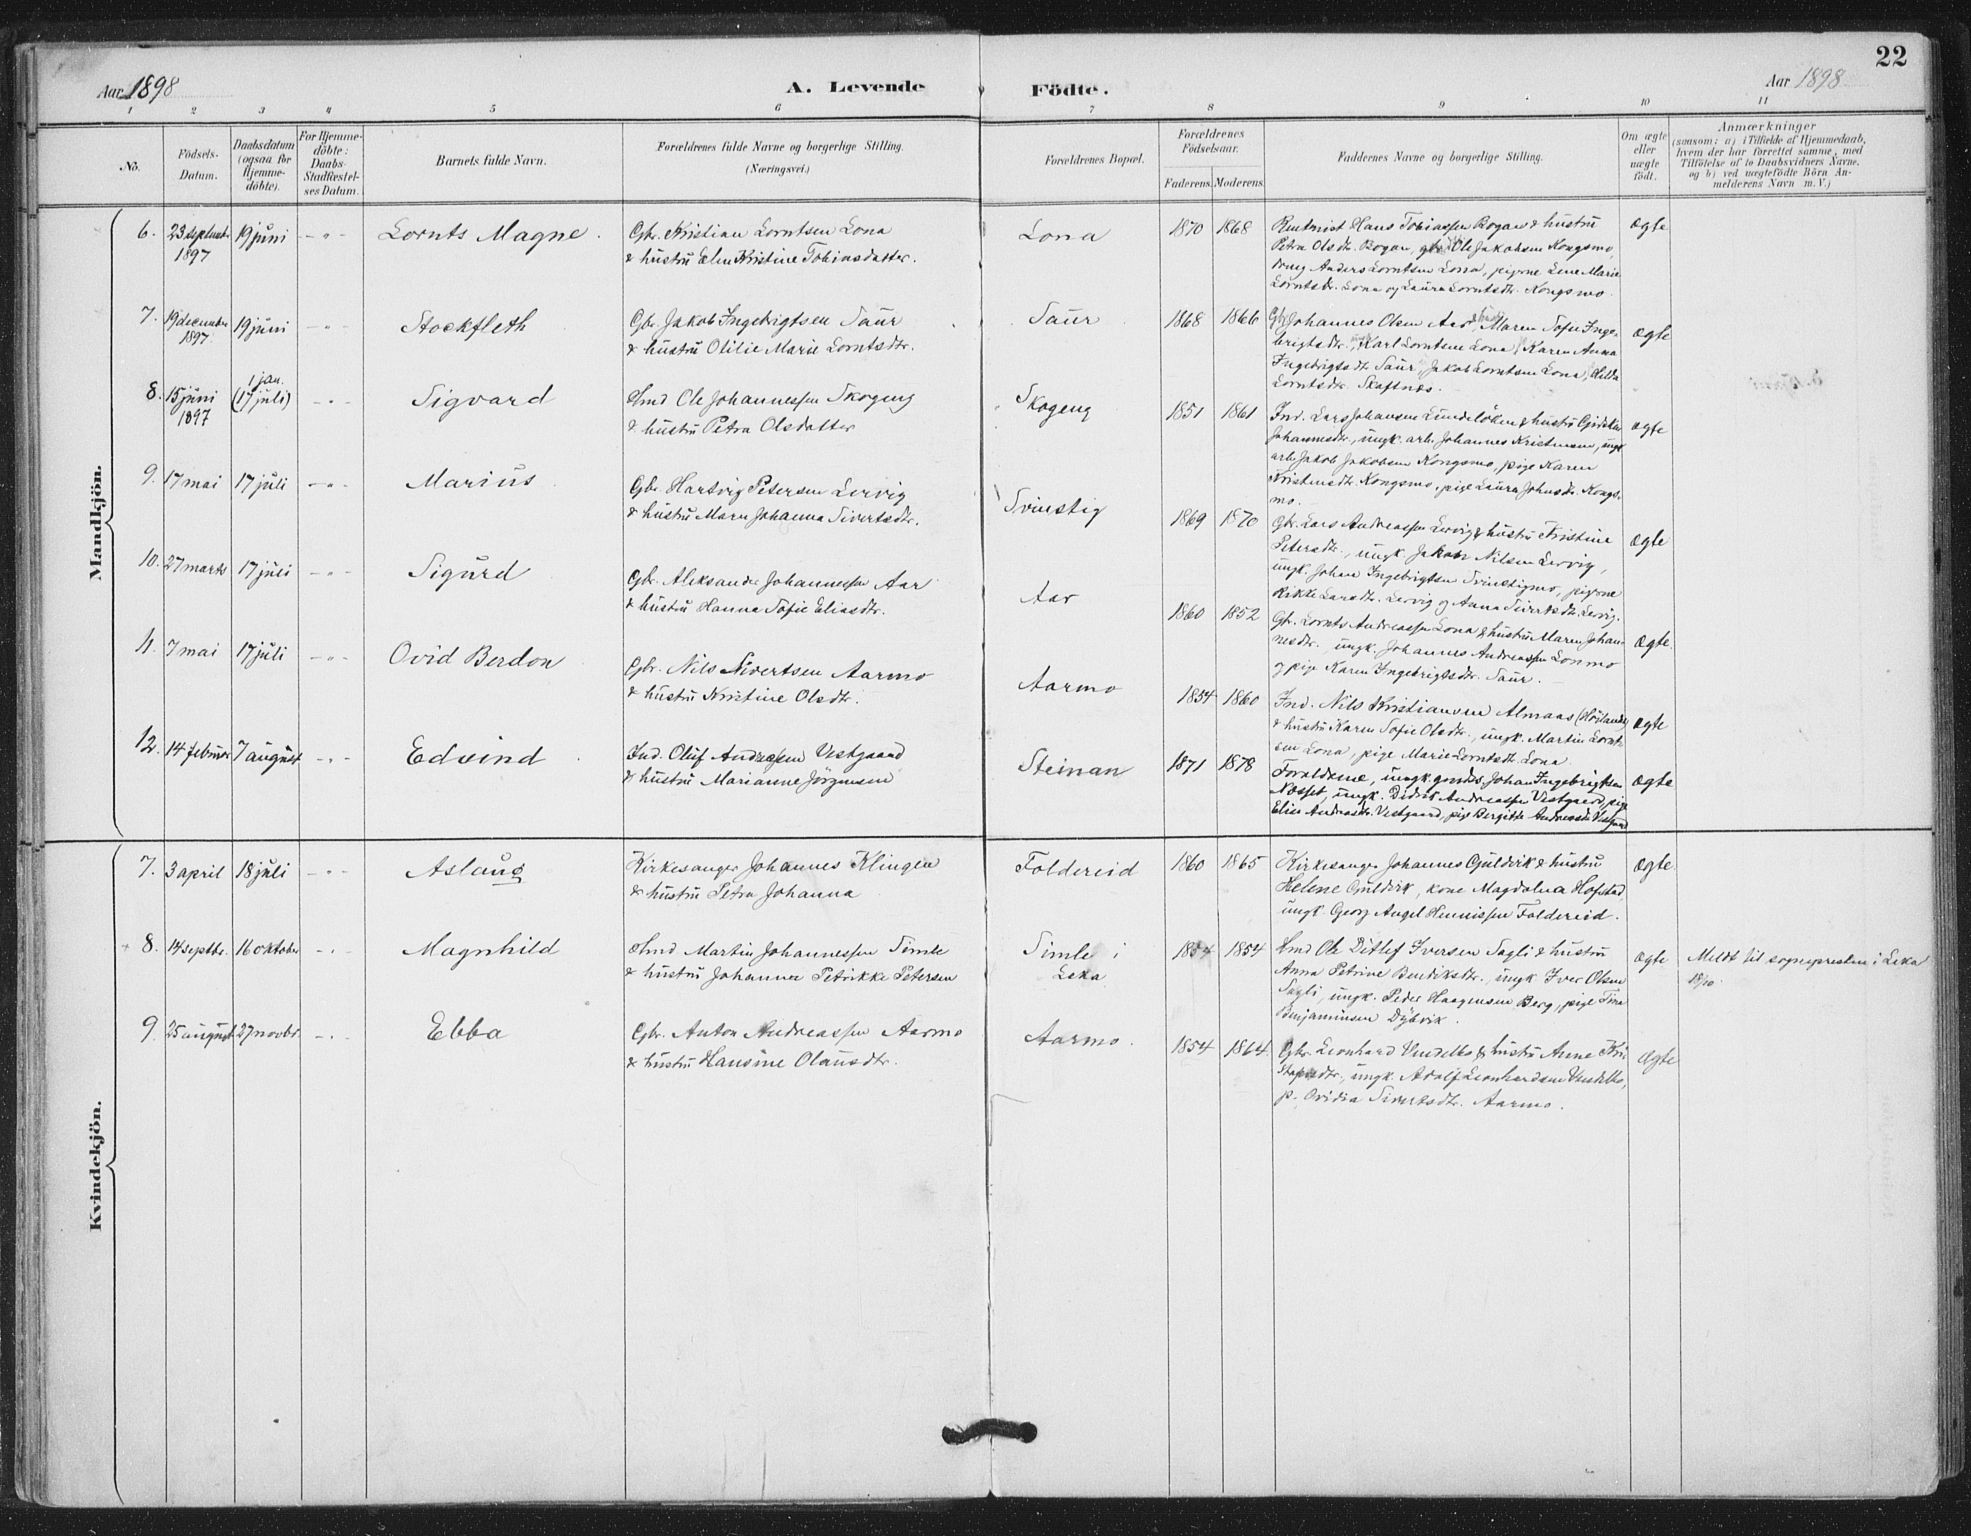 22
Aar 1898
A. Levende Födte.
Aar 1898
1 2 3 4 5 6 7 8 9 10 11
No.
Födsels-Datum.
Daabsdatum (ogsaa for Hjemme-döbte).
For Hjemme-döbte: Daabs-Stadfæstel-ses Datum.
Barnets fulde Navn.
Forældrenes fulde Navne og borgerlige Stilling. (Næringsvei.)
Forældrenes Bopæl.
Forældrenes Födselsaar.
Faderens. Moderens.
Faddernes Navne og borgerlige Stilling.
Om ægte eller uægte födt.
Anmærkninger
(saasom: a) i Tilfælde af Hjemmedaab,
hvem der har forrettet samme, med
Tilföielse af to Daabsvidners Navne.
og b) ved uægtefödte Börn An-
melderens Navn m. V.)
Mandkjön.
6. 23 septembr 1897 19 juni - " - Lornts Magne.
Gbr. Kristian Lorntsen Lona
& hustru Elen Kristine Tobiasdatter.
Lona 1870 1868
Hans Tobiassen Rogan & hustru
Petra Olsdtr. Rogan, Ole Jakobsen Kongsmo,
Anders Lorntsen Lona, pigerne Lene Marie
Lorntsdtr. Lona og Laura Lorntsdtr. Kongsmo.
ægte
7. 19 december 1897 19 juni - " - Stockfleth
Gbr. Jakob Ingebrigtsen Saur
& hustru Otilie Marie Lorntsdtr.
Saur 1868 1866
Gbr. Johannes Olsen Aar & hustru Maren Sofie Inge-
brigtsdtr., Karl Lorntsen Lona, Karen Anna
Ingebrigtsdtr. Saur, Jakob Lorntsen Lona, Hilda
Lorntsdtr. Skaftnes.
ægte
8. 15 juni 1897 1 jan. (17 juli) - " - Sigvard
Ole Johannessen Skogeng
& hustru Petra Olsdatter
Skogeng 1851 1861
Ind. Lars Johansen & hustru
Johannesdtr., ungk. arb. Johannes Kristensen, ungk.
arb. Jakob Jakobsen Kongsmo, pige Karen
Kristensdtr. Kongsmo, pige Laura Johnsdtr. Kongs-
mo.
ægte
9. 17 mai 17 juli - " - Marius
Gbr. Hartvig Petersen Lervig
& hustru Maren Johanna Sivertsdtr.
Svinstig 1869 1870
Gbr. Lars Andreassen Lervig & hustru Kristine
Petersdtr., ungk. Jakob Nilsen Lervig,
ungk. Johan Ingebrigtsen Svinstigmo, pigerne
Rikke Larsdtr. Lervig og Anna Sivertsdtr. Lervig.
ægte
10. 27 marts 17 juli - " - Sigurd
Gbr. Aleksander Johannessen Aar
& hustru Hanna Sofie Eliasdtr.
Aar 1860 1852
Gbr. Lornts Andreassen Lona & hustru Maren Johan-
nesdtr., ungk. Johannes Andreassen Lonmo
og pige Karen Ingebrigtsdtr. Saur.
ægte.
11. 7 mai 17 juli - " - Ovid Berdon
Gbr. Nils Sivertsen Aarmo
& hustru Kristine Olsdtr.
Aarmo 1854 1860
Ind. Nils Kristiansen Almaas
& hustru Karen Sofie Olsdtr., ungk. Martin Lornt-
sen Lona, pige Marie Lorntsdtr. Lona
ægte
12. 14 februar 7 august - " - Edvind
Ind. Oluf Andreassen Vestgaard
& hustru Marianne Jörgensen
Steinan 1871 1878
Forældrene, ungk. gmds. Johan Ingebrigtsen
Næsset, ungk. Didrik Andreassen Vestgaard, pige
Elise Andreasdtr. Vestgaard, pige Bergitte Andreasdtr. Vestgaard
ægte
Kvindekjön.
7. 3 april 18 juli - " - Aslaug
Kirkesanger Johannes Klingen
& hustru Petra Johanna
Foldereid 1860 1865
Kirkesanger Johannes Guldvik & hustru
Helene Guldvik, kone Magdalena Hofstad
ungk. Georg Angel Hennissen Foldereid.
ægte
8. 14 septbr. 16 oktober - " - Magnhild
Martin Johannessen Simle
& hustru Johanna Petrikke Petersen
Simle i Leka 1854 1854
Ole Ditlef Iversen Sagli & hustru
Anna Petrine Bendiksdtr., ungk. Iver Olsen
Sagli, ungk. Peder Haagensen Berg, pige Tina
Benjaminsen Dybvik.
ægte
Meldt til sognepresten i Leka
18/10.
9. 25 august 27 novbr. - " - Ebba
Gbr. Anton Andreassen Aarmo
& hustru Hansine Olausdtr.
Aarmo. 1854 1864
Gbr. Leonhard Vendelbo & hustru Anne Kri-
stofersdtr., ungk. Adolf Leonhardsen Vendelbo,
p. Ovidia Sivertsdtr. Aarmo.
ægte